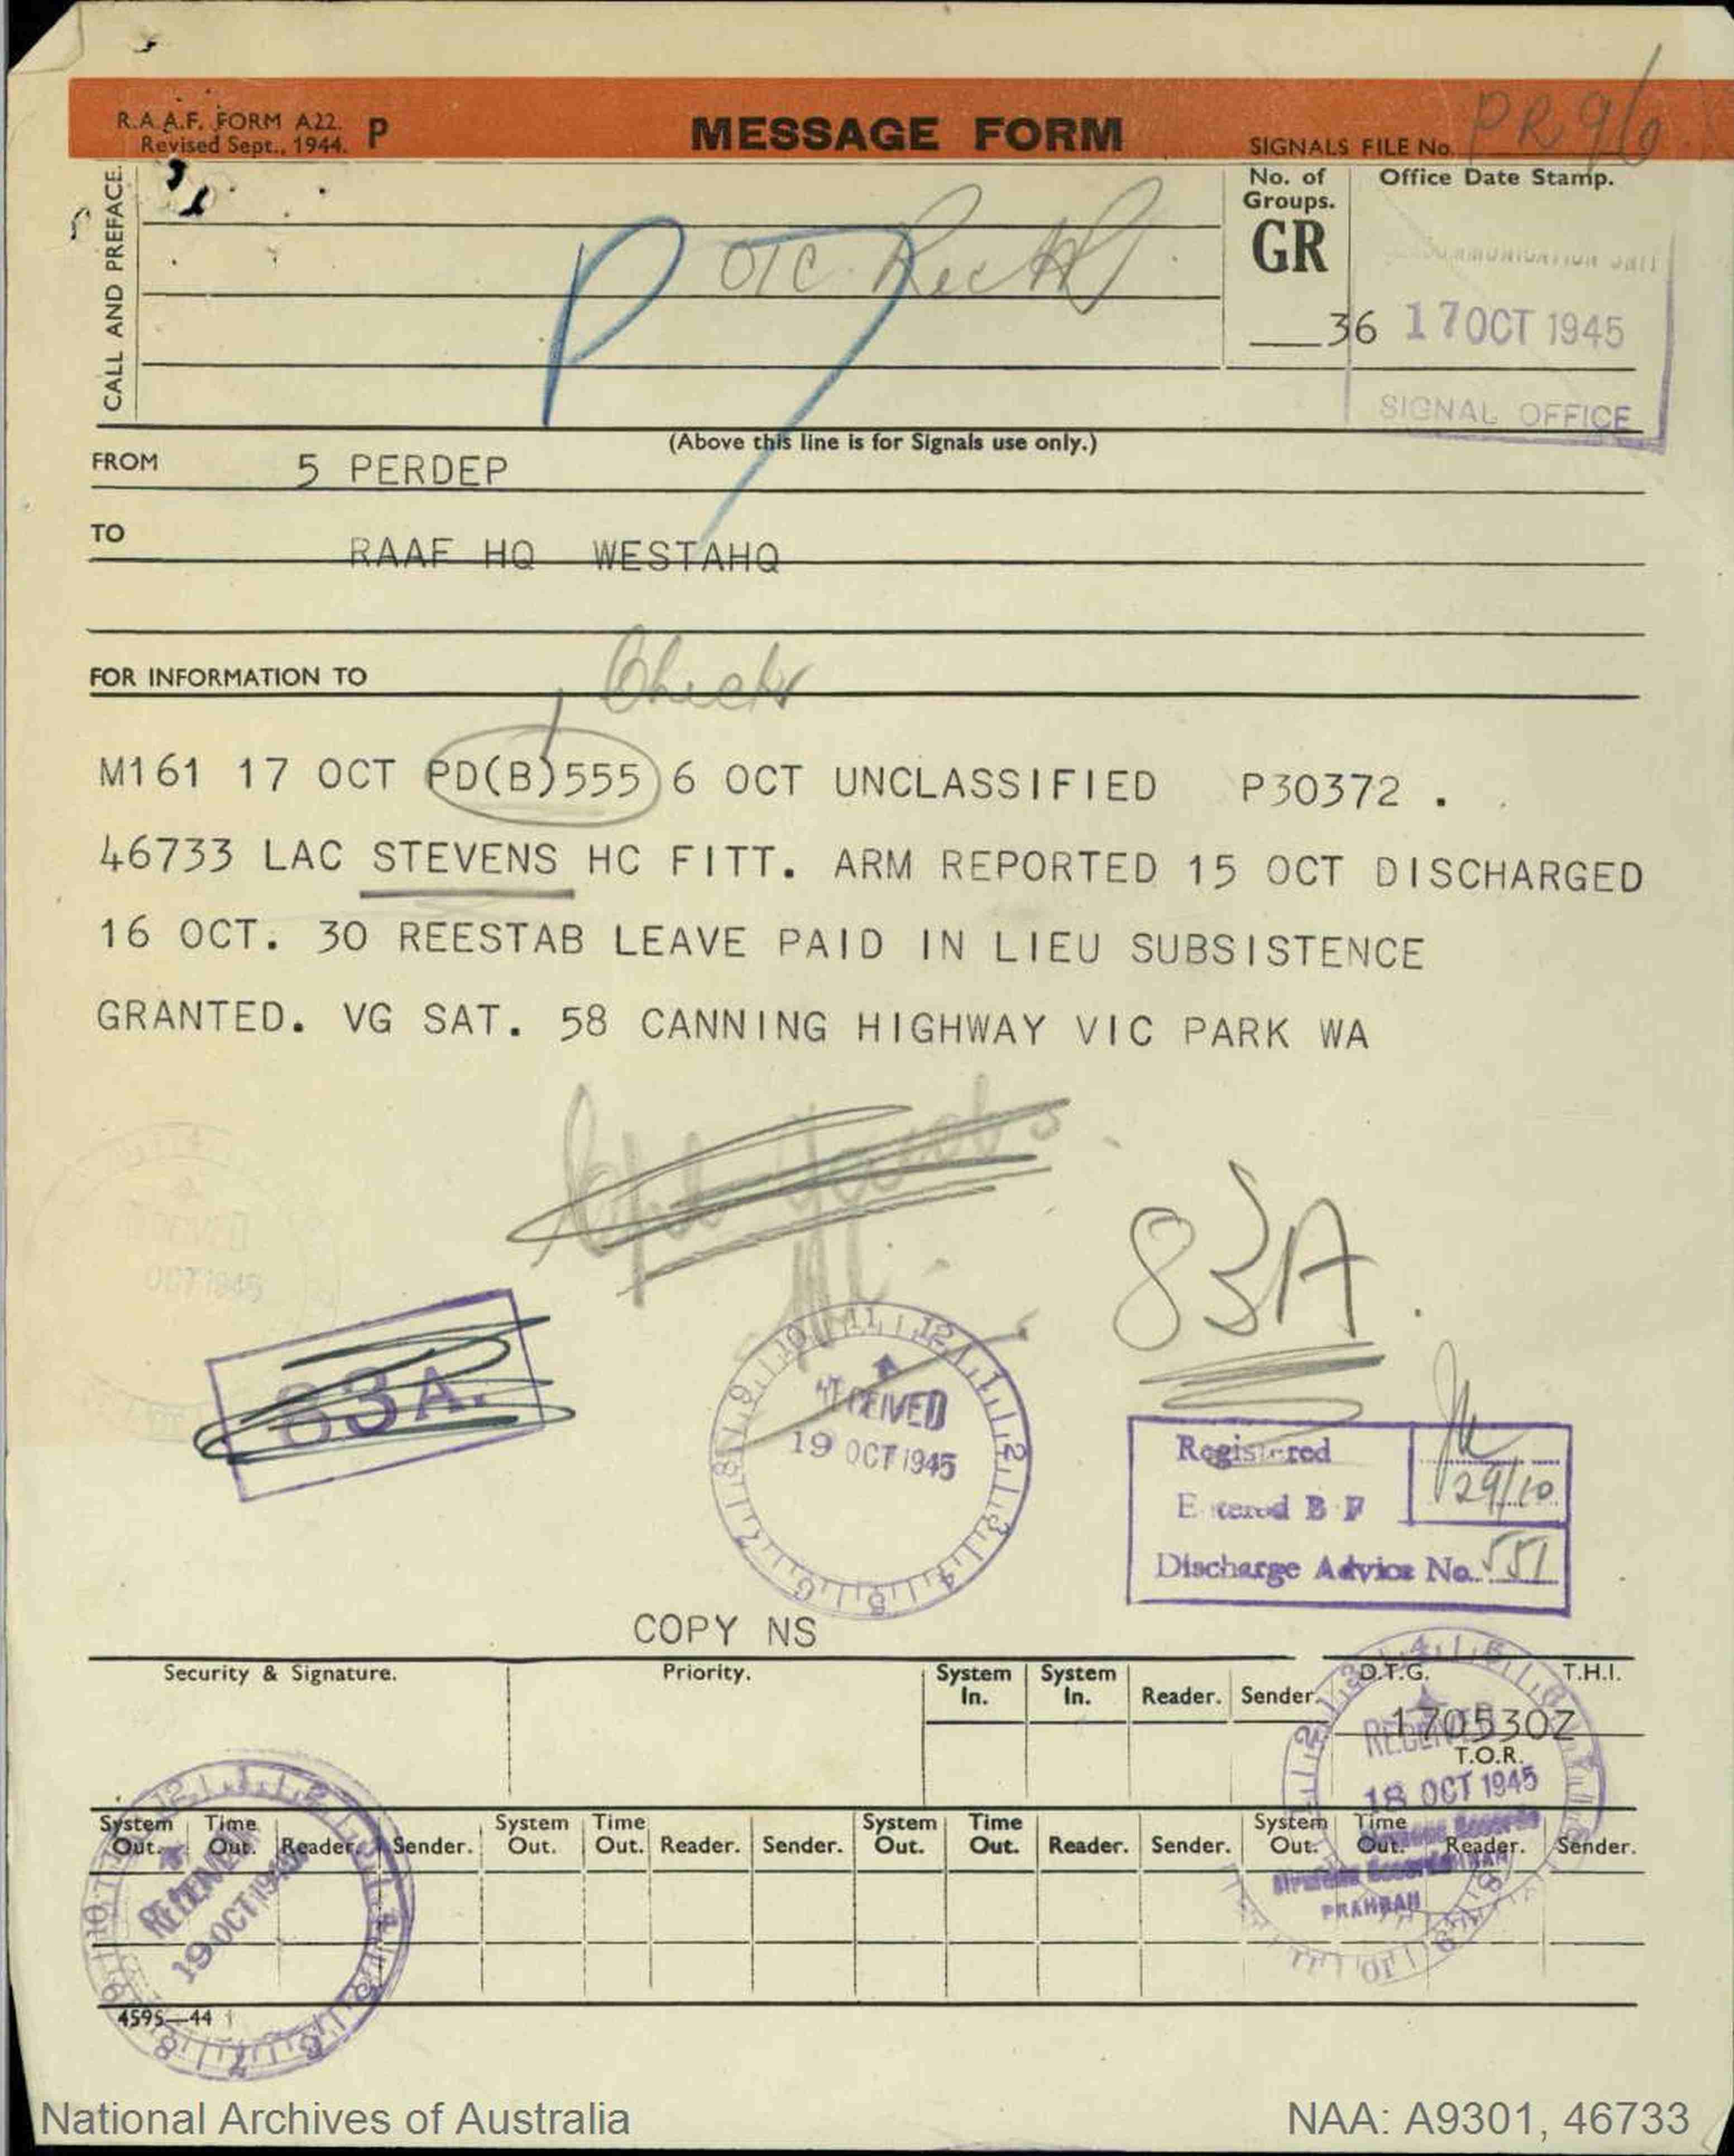 R.A.A.F. FORM A22. P
Revised Sept., 1944.
MESSAGE FORM
SIGNALS FILE No. PR 96
CALL AND PREFACE.
No. of Groups.
GR
36
Office Date Stamp.
COMMUNICATION UNIT
17 OCT 1945
SIGNAL OFFICE
P7
(Above this line is for Signals use only.)
FROM 5 PERDEP
TO RAAF HQ WESTAHQ
FOR INFORMATION TO
Check
M161 17 OCT PD(B)555 6 OCT UNCLASSIFIED P30372 .
46733 LAC STEVENS HC FITT. ARM REPORTED 15 OCT DISCHARGED
16 OCT. 30 REESTAB LEAVE PAID IN LIEU SUBSISTENCE
GRANTED. VG SAT. 58 CANNING HIGHWAY VIC PARK WA
83A.
83A.
RECEIVED
19 OCT 1945
Registered
Entered B F
29/10
Discharge Advice No. 551
COPY NS
Security & Signature. Priority. System In. System In. Reader. Sender. D.T.G. T.H.I.
170530Z
T.O.R.
RECEIVED
18 OCT 1945
PRAHRAN
System Out. Time Out. Reader. Sender. System Out. Time Out. Reader. Sender. System Out. Time Out. Reader. Sender. System Out. Time Out. Reader. Sender.
RECEIVED
19 OCT 1945
4595—44
National Archives of Australia
NAA: A9301, 46733